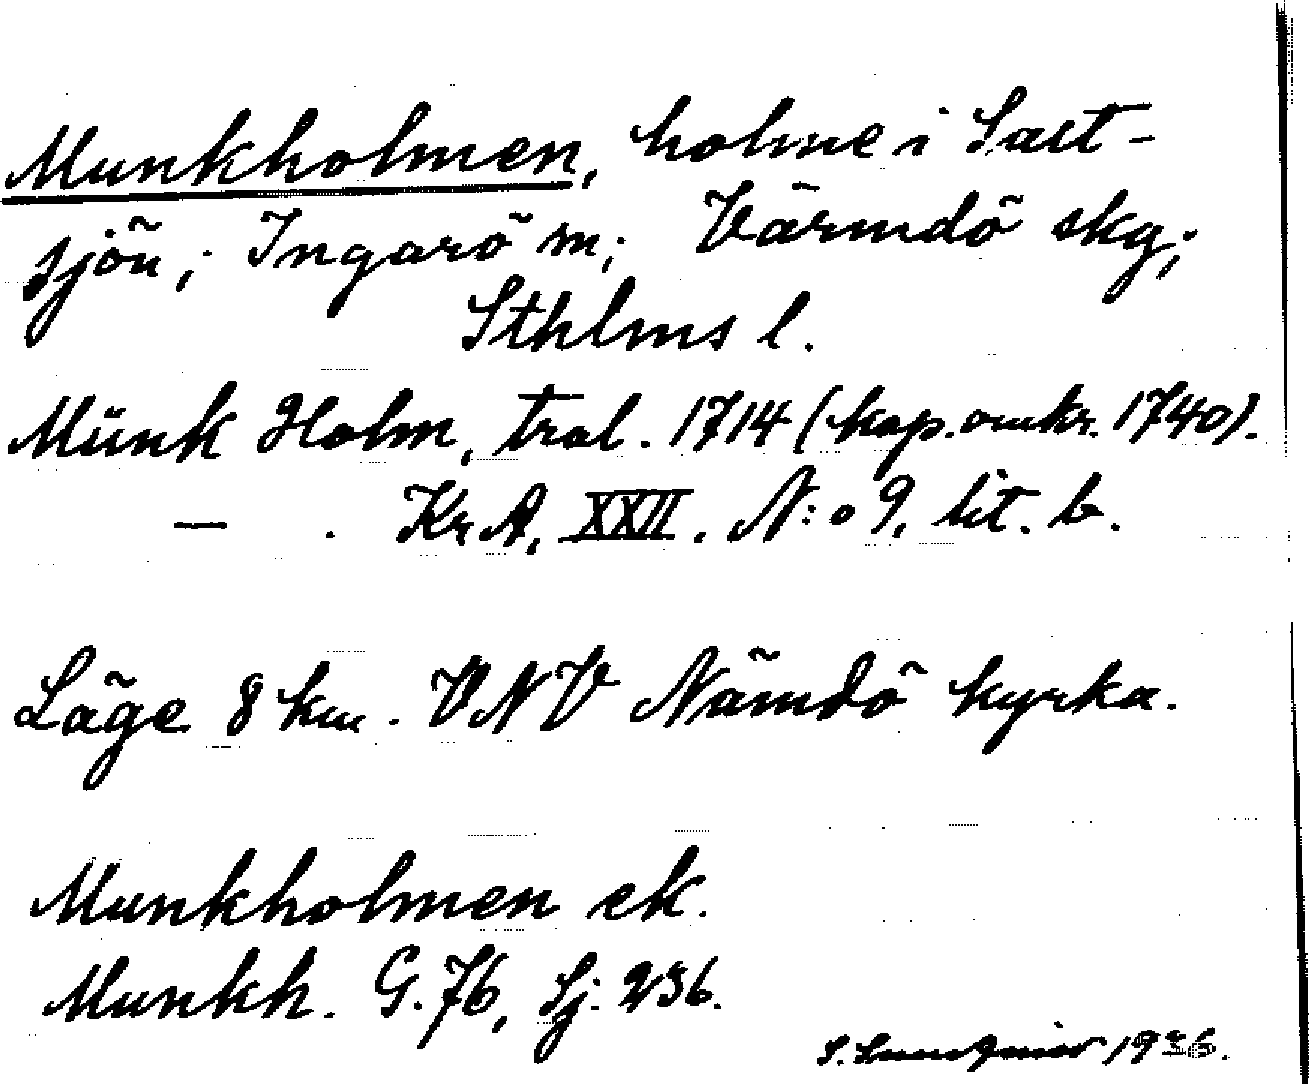 Munkholmen, holme i Salt-
sjön; Ingarö sn; Värmdö skg;
Sthlms l.
Münk Holm, tral. 1714 (kop. omkr. 1740).
— . KrA, XXII. N:o 9, lit. b.
Läge 8 km. VNV Nämdö kyrka.
Munkholmen ek.
Munkh. G. 76, Sj. 236.
S. 1936.